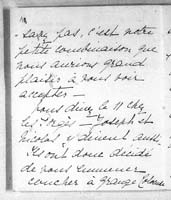 savez pas, c'est notre
petite combinaison que
nous aurions grand
plaisir à vous voir
accepter —
vous dinez le 11 chez
les — Joseph et
Nicolas y dinent aussi
Ils ont donc décidé
de vous ramener
coucher à Grange